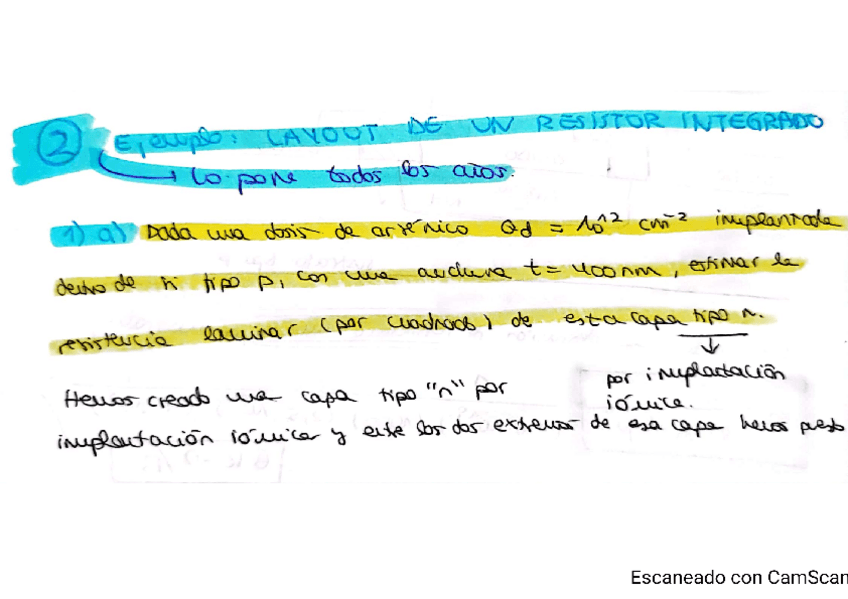 ② Ejemplo: LAYOUT DE UN RESISTOR INTEGRADO
↳ Lo pone todos los años.
1) a) Dada una dosis de arsénico Qd = 10^12 cm^-2 implantada
dentro de si tipo p, con una anchura t = 400nm, estimar la
resistencia laminar (por cuadrado) de esta capa tipo n.
↓
por implantación
iónica.
Hemos creado una capa tipo "n" por
implantación iónica y entre los dos extremos de esa capa hemos puesto
Escaneado con CamScan